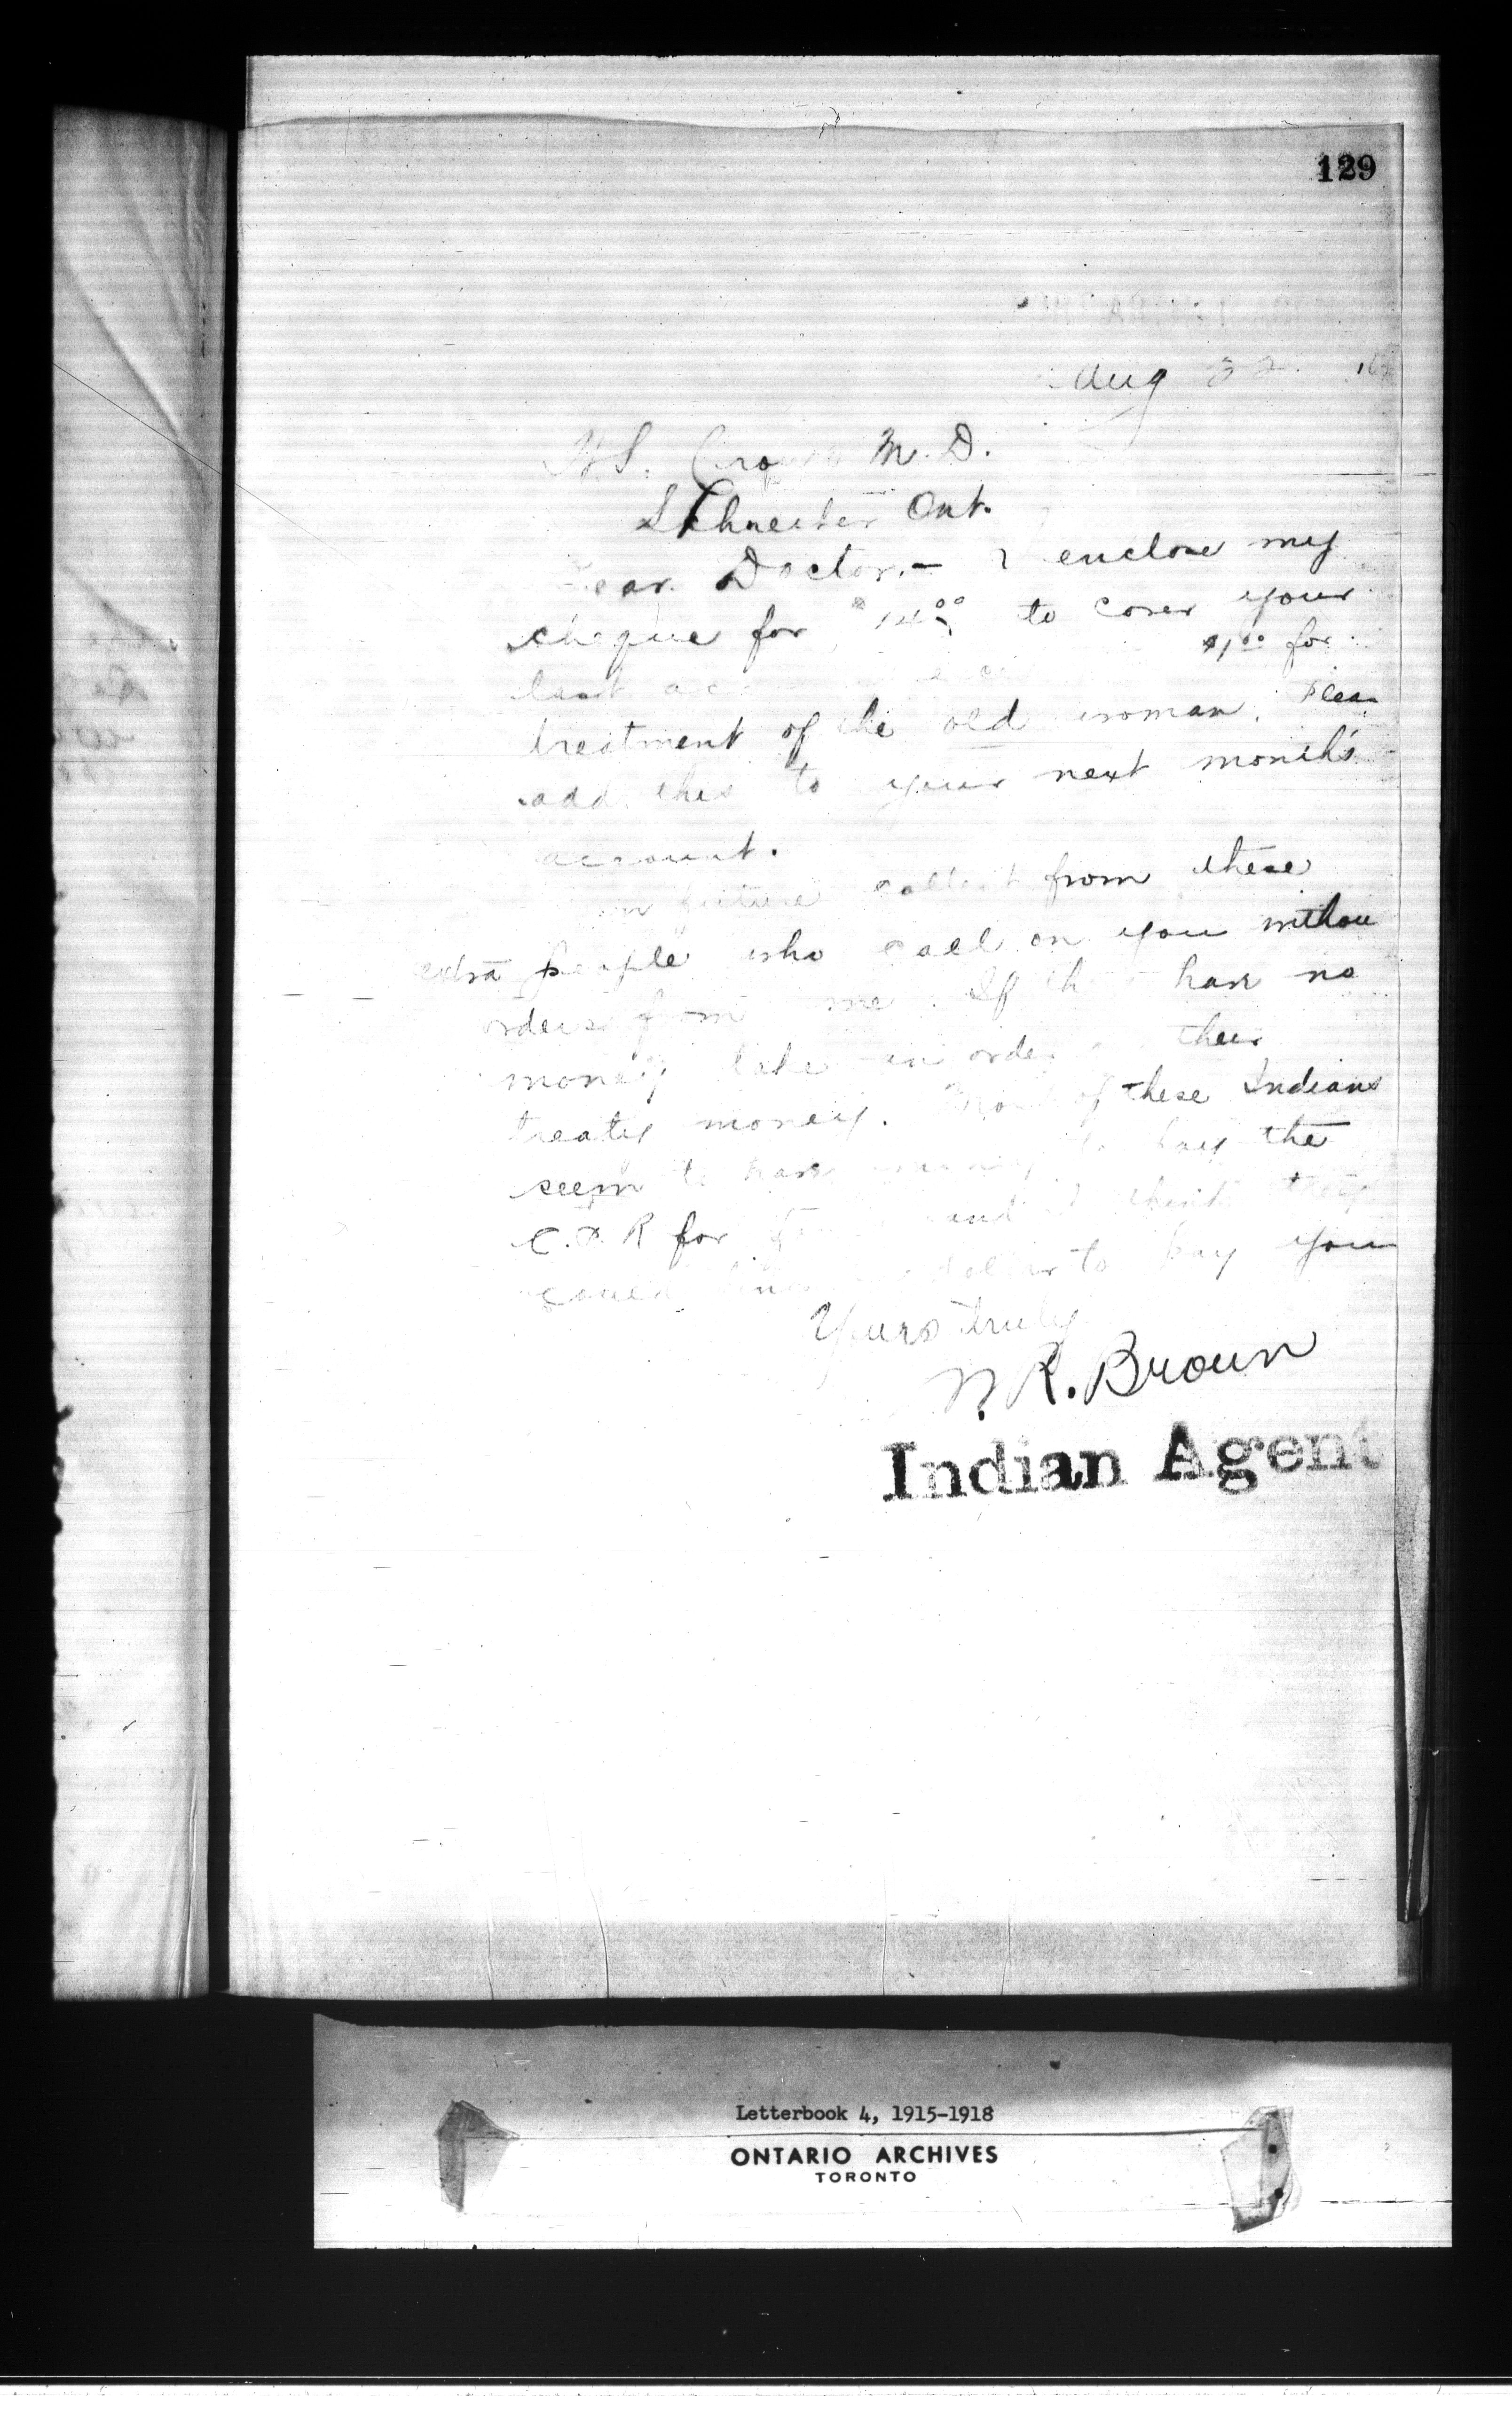 129
Aug 22
M.D.
Schreiber Ont.
Dear Doctor,- I enclose my
cheque for $14.00 to cover your
last $1.00 for
treatment of the old woman. Pleas
add this to your next month's
account.
In future collect from these
extra people who call on you withou
orders from me. If have no
money take an order their
treaty money. Most of these Indians
seem to have to pay the
C.P.R for and I think they
could to pay you
Yours truly
N.R. Brown
Indian Agent
Letterbook 4, 1915-1918
ONTARIO ARCHIVES
TORONTO